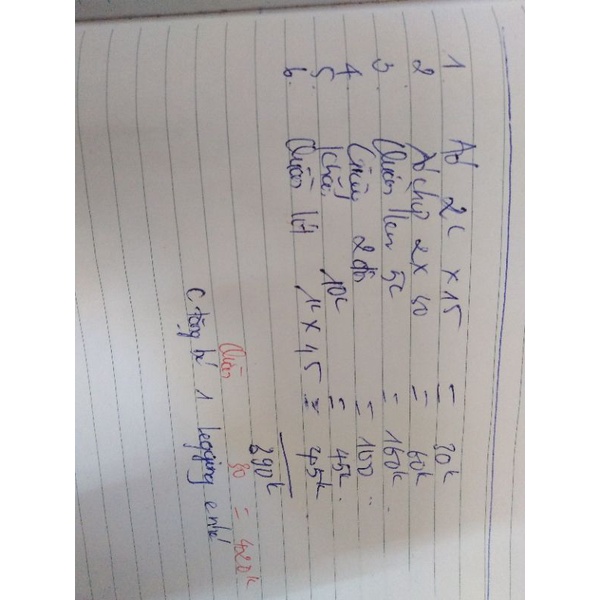 1 Áo 2c x 15 = 30k
2 Áo 2 x 30 = 60k
3 Quần len 5c = 150k
4 2đôi = 100
5 khăn 10c = 45k
6. Quần 1c x 45 = 45k
390k
Quần 30 = 420k
C tặng bé 1 legging e nhé